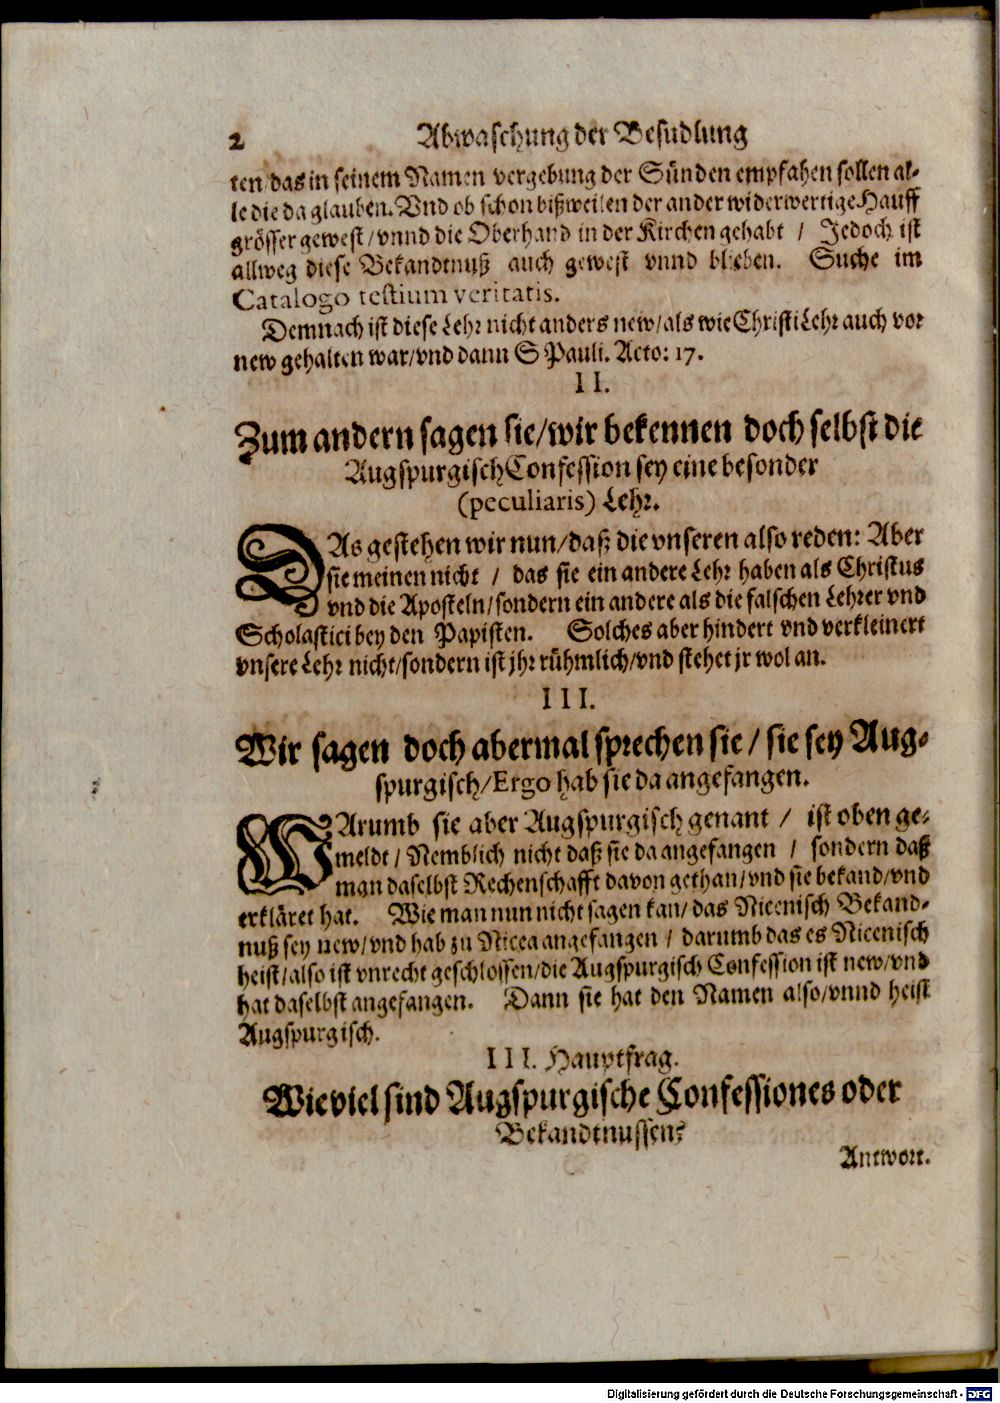 2 Abwaschung der Besudlung
ten/das in seinem Namen vergebung der Sünden empfahen sollen al-
le die da glauben. Vnd ob schon bißweilen der ander widerwertige Hauff
grösser gewest/vnnd die Oberhand in der Kirchen gehabt / Jedoch ist
allweg diese Bekandtnuß auch gewest vnnd blieben. Suche im
Catalogo testium veritatis.
Demnach ist diese Lehr nicht anders new/als wie Christi Lehr auch vor
new gehalten war/vnd dann S Pauli. Acto: 17.
II.
Zum andern sagen sie/wir bekennen doch selbst die
Augspurgisch Confession sey eine besonder
(peculiaris) Lehr.
DAs gestehen wir nun/daß die vnseren also reden: Aber
sie meinen nicht / das sie ein andere Lehr haben als Christus
vnd die Aposteln/sondern ein andere als die falschen Lehrer vnd
Scholastici bey den Papisten. Solches aber hindert vnd verkleinert
vnsere Lehr nicht/sondern ist jhr rühmlich/vnd stehet jr wol an.
III.
Wir sagen doch abermal sprechen sie / sie sey Aug-
spurgisch/Ergo hab sie da angefangen.
WArumb sie aber Augspurgisch genant / ist oben ge-
meldt / Nemblich nicht daß sie da angefangen / sondern daß
man daselbst Rechenschafft davon gethan/vnd sie bekand/vnd
erkläret hat. Wie man nun nicht sagen kan/das Nicenisch Bekand-
nuß sey new/vnd hab zu Nicea angefangen / darumb das es Nicenisch
heist/also ist vnrecht geschlossen/die Augspurgisch Confession ist new/vnd
hat daselbst angefangen. Dann sie hat den Namen also/vnnd heist
Augspurgisch.
III. Hauptfrag.
Wieviel sind Augspurgische Confessiones oder
Bekandtnussen?
Antwort.
Digitalisierung gefördert durch die Deutsche Forschungsgemeinschaft - DFG